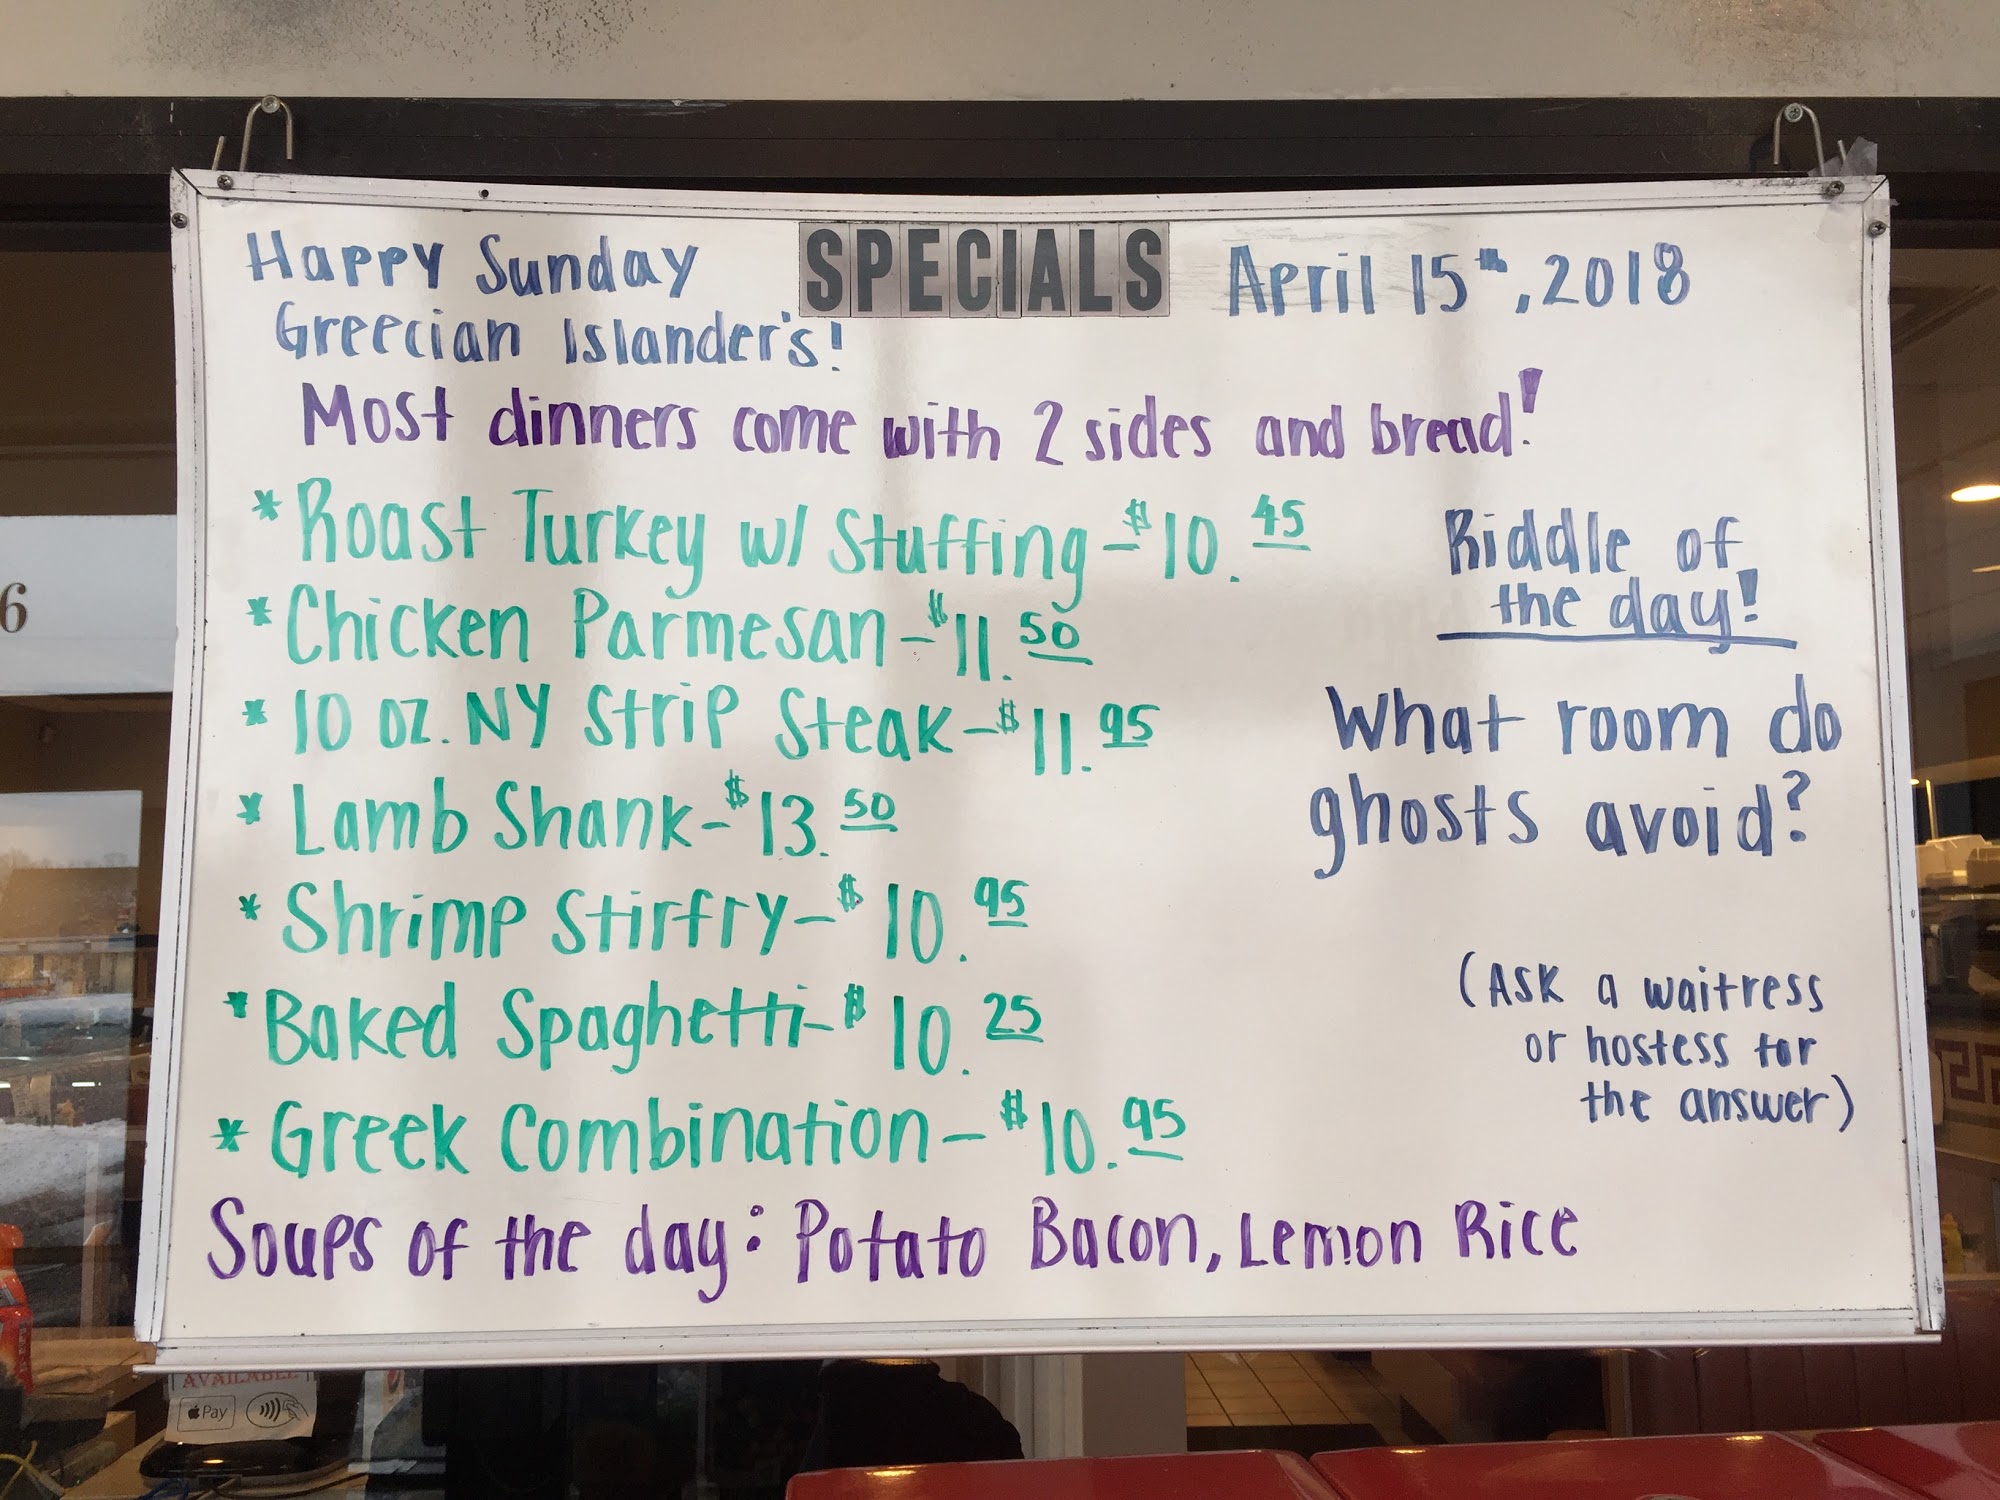 SPECIALS
Happy Sunday
Greecian Islander's!
April 15th, 2018
Most dinners come with 2 sides and bread!
* Roast Turkey w/ Stuffing - $10.45
* Chicken Parmesan - $11.50
* 10 oz. NY Strip Steak - $11.95
* Lamb Shank - $13.50
* Shrimp Stirfry - $10.95
* Baked Spaghetti - $10.25
* Greek Combination - $10.95
Soups of the day: Potato Bacon, Lemon Rice
Riddle of
the day!
What room do
ghosts avoid?
(Ask a waitress
or hostess for
the answer)
6
AVAILABLE
Pay